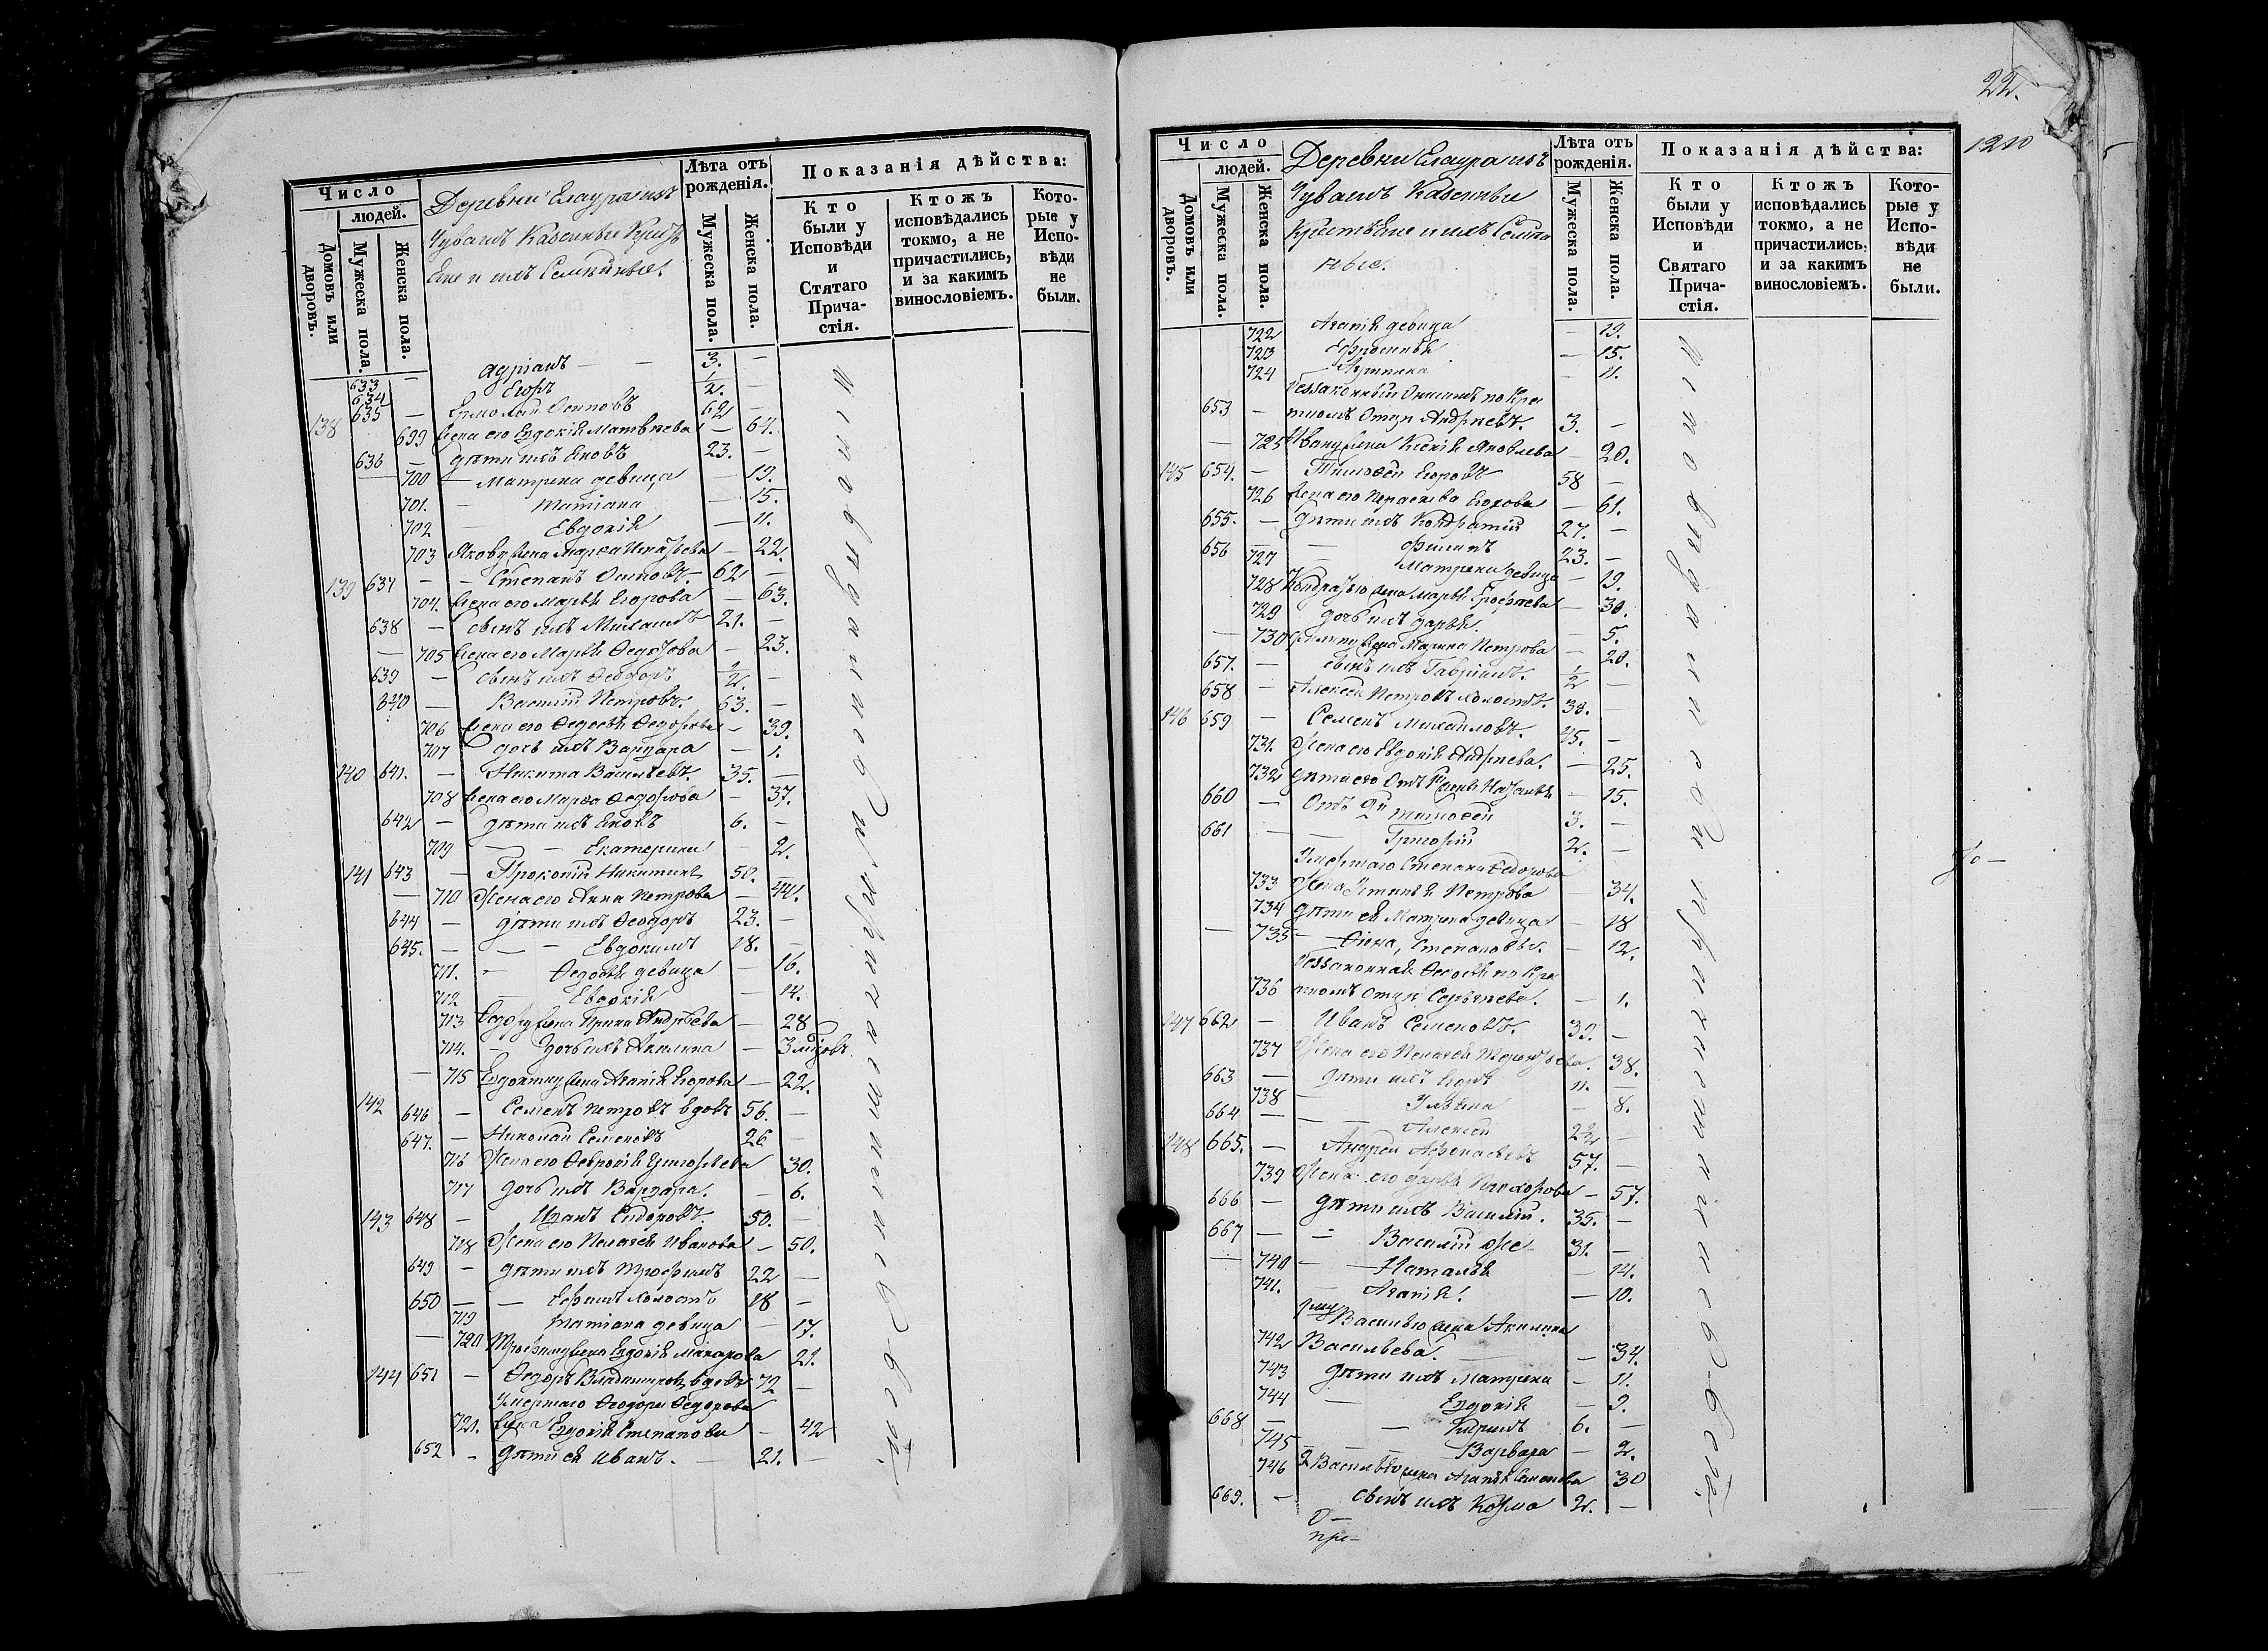 Число
людей.
Домовъ или дворовъ.
Мужеска пола.
Женска пола.
Деревни Елаура изъ
Чувашъ Казенные Крестья
Ене и ихъ Семейные.
Лѣта отъ рожденія.
Мужеска пола.
Женска пола.
Показанія дѣйства:
Кто были у Исповѣди и Стятаго Прича-стія.
Ктожъ исповѣдались токмо, а не причастились, и за какимъ винословіемъ.
Кото-рые у Испо-вѣди не были.
633 — Адріанъ — 3. —
634 Егоръ 1/2. —
138 635 — Ермолай Осиповъ 62 —
699 Жена его Евдокія Матвѣева — 64.
636 — Дѣти ихъ Яковъ 23. —
700 — Матрена девица — 19.
701. — Татіана — 15.
702 — Евдокія — 11.
703 Якову жена Марѳа — 22.
139 637 — Степанъ Осиповъ. 62 —
704. Жена его Марья Егорова — 63.
638 — Сынъ ихъ Михаилъ 21. —
705 Жена его Марья Ѳедорова — 23.
639 — Сынъ ихъ Ѳеодоръ 1/2. —
640 — Василій Петровъ. 63. —
706 Жена его Ѳедосья Ѳедорова — 39.
707 дочь ихъ Варвара — 1.
140 641. — Никита Васильевъ. 35. —
708 Жена его Марѳа Ѳедорова — 37.
642 — Дѣти ихъ Яковъ 6. —
709 — Екатерина — 2.
141 643 — Прокопій Никитинъ 50. —
— 710 Жена его Анна Петрова — 44.
644 — Дѣти ихъ Ѳеодоръ 23. —
645. — — Евдокимъ 18. —
711. — Ѳедосья девица — 16.
712 — Евдокія — 14.
713 Ѳедору жена Ирина Андреева — 28
714. — дочь ихъ Акилина — 3 мѣсяцовъ
— 715 Евдокиму жена Агапія Егорова — 22.
142 646 — Семенъ Петровъ вдовъ 56. —
647. — Николай Семеновъ 26 —
716 Жена его Ѳевронія Григорьева 30.
717 дочь ихъ Варвара. — 6.
143 648 — Иванъ Сидоровъ. 50. —
718 Жена его Пелагея Иванова — 50.
649 — Дѣти ихъ Трофимъ 22 —
650 — — Ефимъ холостъ 18 —
719 Татіана девица — 17.
— 720 Трофиму жена Евдокія Макарова 21.
144 651 — Ѳедоръ Владимировъ вдовъ 72 —
Умершаго Ѳеодора Ѳедорова
721. жена Евдокія Степанова — 42
652 — Дѣти ея Иванъ. — 21. —
Исповѣдались и причастились Всѣ.
22.
120
Число
людей.
Домовъ или дворовъ.
Мужеска пола.
Женска пола.
Деревни Елаура изъ
Чувашъ Казенные
Крестьяне и ихъ Семей
ные.
Лѣта отъ рожденія.
Мужеска пола.
Женска пола.
Показанія дѣйства:
Кто были у Исповѣди и Святаго Прича-стія.
Ктожъ исповѣдались токмо, а не причастились, и за какимъ винословіемъ.
Кото-рые у Испо-вѣди не были.
722 Агапія девица — 19.
723 Ефросинья — 15.
724 — 11.
незаконный по Кре
653 — стномъ Отцѣ Андреевъ. 3. —
— 725 Ивану жена Ксенія Яковлева — 20.
145 654. — Тимоѳей Егоровъ 58 —
726 Жена его Параскева Егорова — 61.
655. — Дѣти ихъ Кондратій 27. —
656 — — Филипъ 23. —
727 Матрена девица — 19.
728 Кондратью жена Марья Ерофѣева — 30.
729 дочь ихъ Дарья. — 5.
— 730 Филипу жена Марина Петрова — 20.
657. — сынъ ихъ Гавріилъ. 1/2 —
658 — Алексей Петровъ холостъ. 30. —
146 659 — Семенъ Михайловъ. 25. —
731. Жена его Евдокія Андреева. — 25.
732 Дѣти его Отъ 1й жены Наталья — 15.
660 — Отъ 2й Тимоѳей 3. —
661 — — Григорій 2. —
Умершаго Степана Ѳедорова
733 Жена Устинья Петрова — 34.
734 Дѣти ея Матрена девица — 18
— 735 — Ѳекла, Степановы. — 12.
незаконная Ѳедосья по Кре
736 стномъ Отцѣ Сергѣева. — 1.
147 662 — Иванъ Семеновъ. 39. —
737 Жена его Пелагея Терентьева. 38.
663 — Дѣти ихъ Егоръ 11. —
738 — Ульяна — 8.
664 — — Алексей 2 1/2 —
148 665. — Андрей Афонасьевъ 57. —
739 Жена его Дарья Никифорова — 57.
666 — Дѣти ихъ Василій. 35. —
667 — — Василій же 31. —
— 740 — Наталья — 14.
741. — Агапія. — 10.
1му Василью жена Акилина
742 Васильева. — 34.
743 Дѣти ихъ Матрена — 11.
744 — Евдокія — 9.
668 — — Кирилъ 6. —
745 — — Варвара — 2.
746 2 Василью жена Агапія Семенова 30
669. — сынъ ихъ Козма 2. —
Исповѣдались и причастились Всѣ.